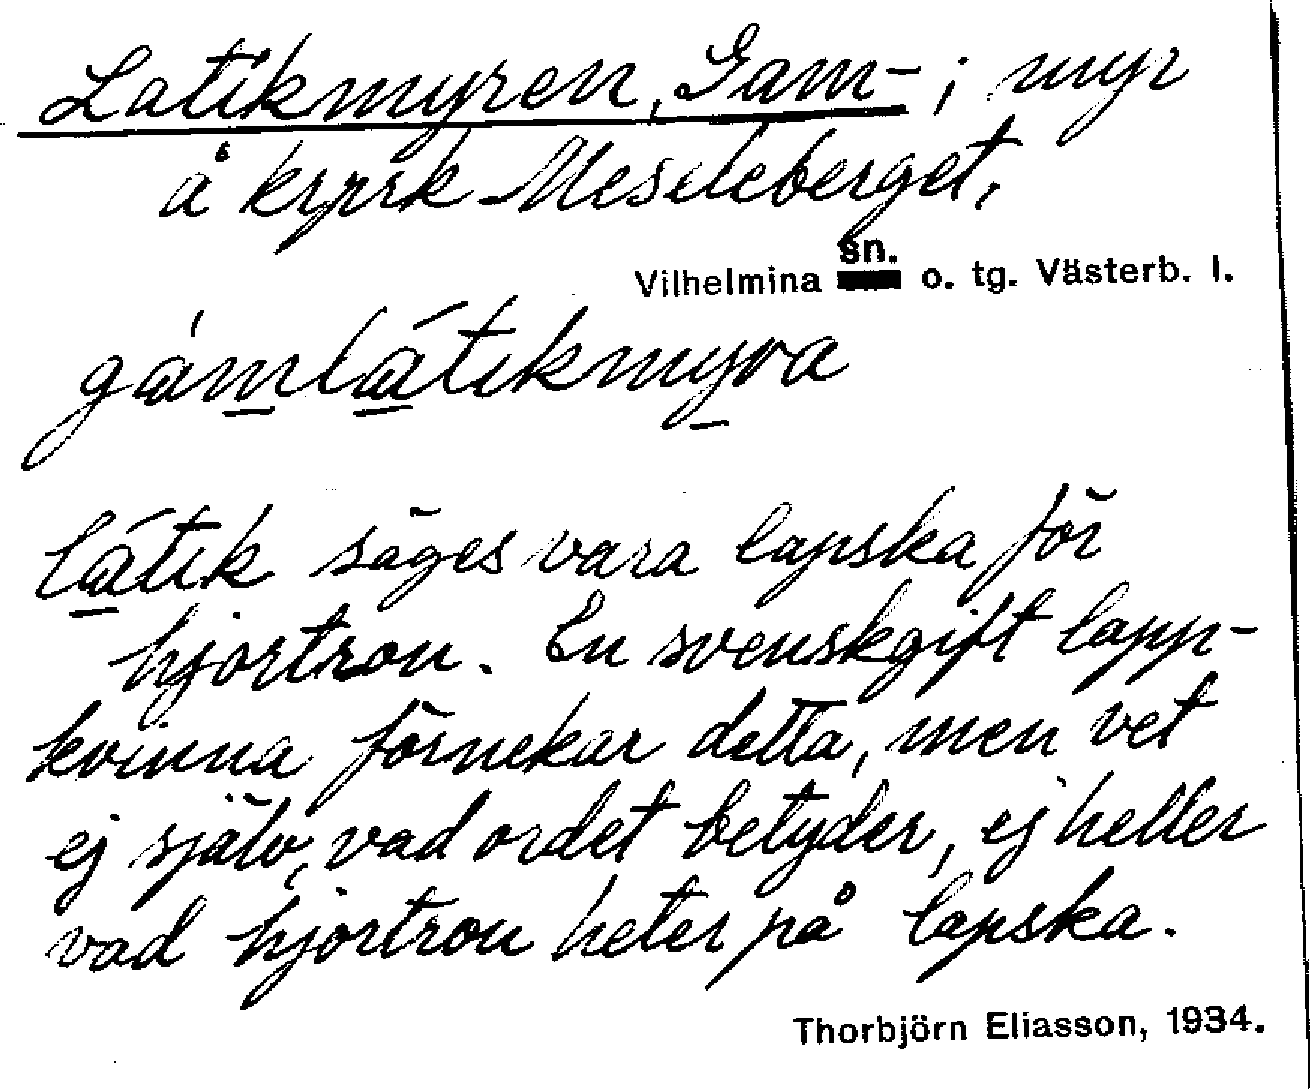 Latikmyren, Gam-; myr
å krprk Meseleberget,
sn.
Vilhelmina o. tg. Västerb. l.
gámlátikmyra
látik säges vara lapska för
hjortron. En svenskgift lapp-
kvinna förnekar detta, men vet
ej själv, vad ordet betyder, ej heller
vad hjortron heter på lapska.
Thorbjörn Eliasson, 1934.